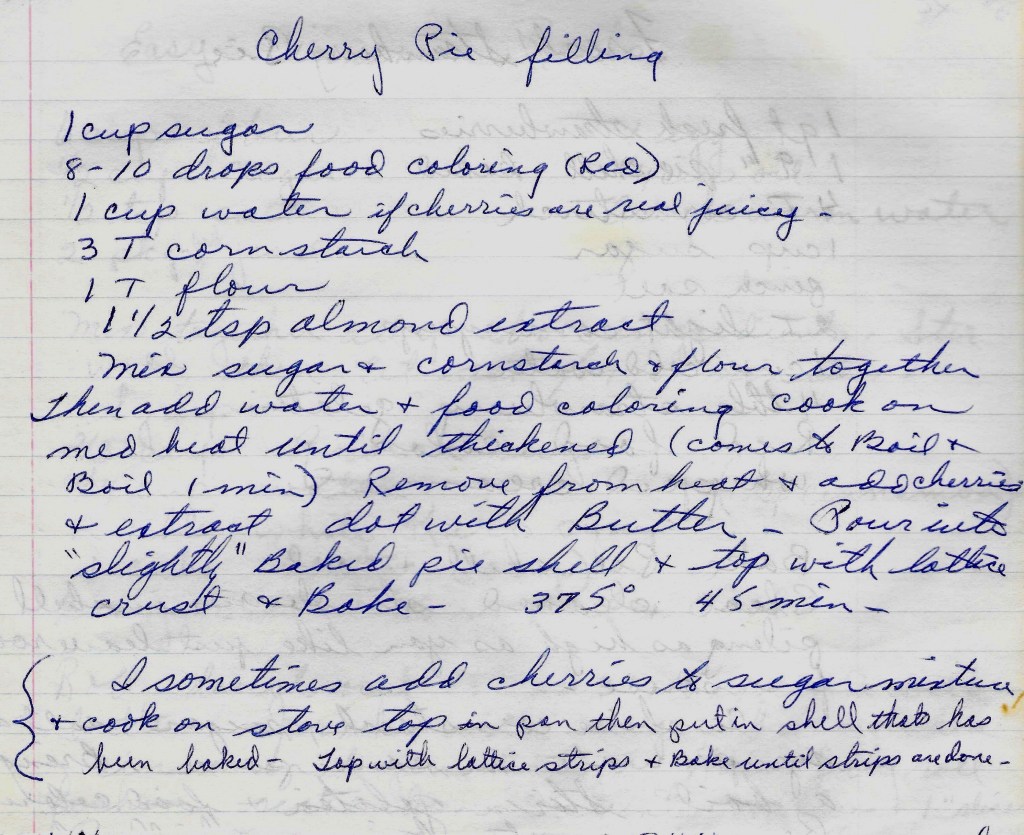 Cherry Pie filling
1 cup sugar
8-10 drops food coloring (Red)
1 cup water if cherries are real juicy -
3 T cornstarch
1 T flour
1 1/2 tsp almond extract
Mix sugar + cornstarch + flour together
Then add water + food coloring cook on
med heat until thickened (comes to Boil +
Boil 1 min) Remove from heat + add cherries
+ extract dot with Butter - Pour into
"slightly" Baked pie shell + top with lattice
crust + Bake - 375° 45 min -
I sometimes add cherries to sugar mixture
+ cook on stove top in pan then put in shell thats has
been baked - Top with lattice strips + Bake until strips are done -